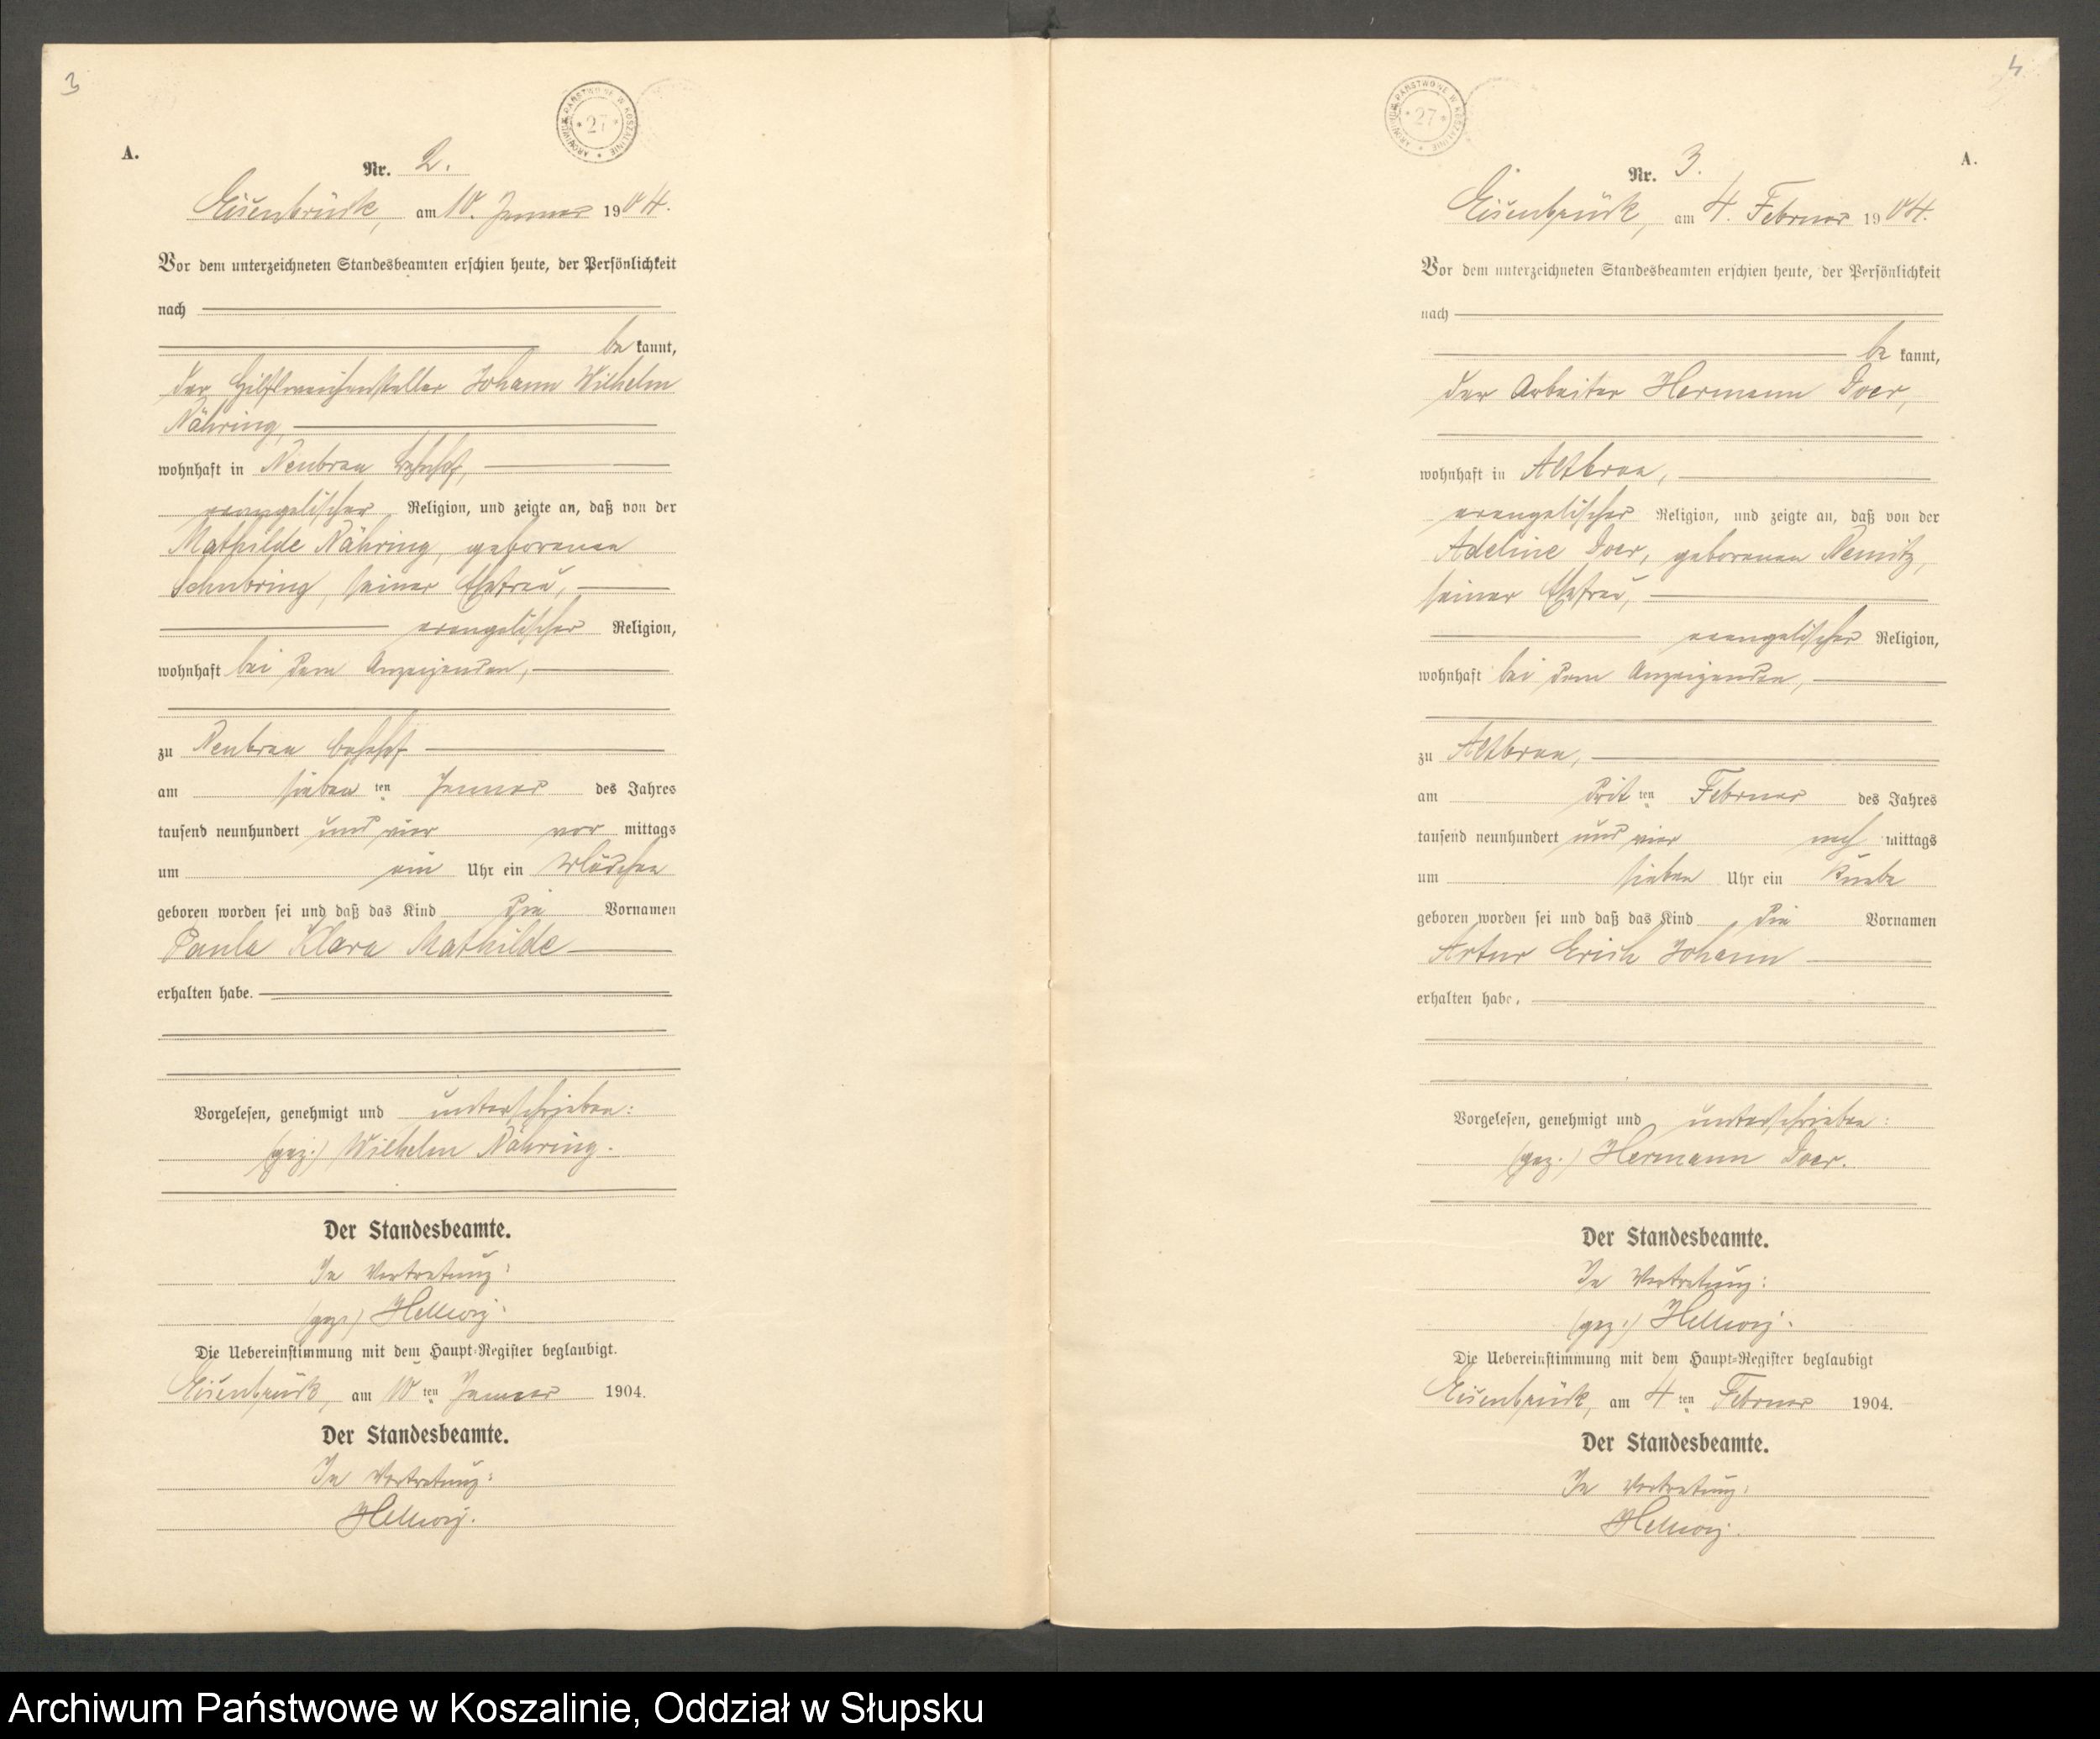 3
ARCHIWUM PAŃSTWOWE W KOSZALINIE * 27 *
A.
Nr. 2.
Eisenbrück, am 10. Januar 1904.
Vor dem unterzeichneten Standesbeamten erschien heute, der Persönlichkeit
nach
be kannt,
der Hilfsweichensteller Johann Wilhelm
Nähring,
wohnhaft in Neubraa Bahnhof,
evangelischer Religion, und zeigte an, daß von der
Mathilde Nähring, geborenen
Schubring, seiner Ehefrau,
evangelischer Religion,
wohnhaft bei dem Anzeigenden,
zu Neubraa Bahnhof
am sieben ten Januar des Jahres
tausend neunhundert und vier vor mittags
um ein Uhr ein Mädchen
geboren worden sei und daß das Kind die Vornamen
Paula Klara Mathilde
erhalten habe.
Vorgelesen, genehmigt und unterschrieben:
(gez.) Wilhelm Nähring.
Der Standesbeamte.
In Vertretung:
(gez.) Hellwig.
Die Uebereinstimmung mit dem Haupt-Register beglaubigt.
Eisenbrück, am 10 ten Januar 1904.
Der Standesbeamte.
In Vertretung:
Hellwig.
4
ARCHIWUM PAŃSTWOWE W KOSZALINIE * 27 *
A.
Nr. 3.
Eisenbrück, am 4. Februar 1904.
Vor dem unterzeichneten Standesbeamten erschien heute, der Persönlichkeit
nach
be kannt,
der Arbeiter Hermann Doer,
wohnhaft in Altbraa,
evangelischer Religion, und zeigte an, daß von der
Adeline Doer, geborenen Nemitz,
seiner Ehefrau,
evangelischer Religion,
wohnhaft bei dem Anzeigenden,
zu Altbraa,
am drit ten Februar des Jahres
tausend neunhundert und vier nach mittags
um sieben Uhr ein Knabe
geboren worden sei und daß das Kind die Vornamen
Artur Erich Johann
erhalten habe.
Vorgelesen, genehmigt und unterschrieben:
(gez.) Hermann Doer.
Der Standesbeamte.
In Vertretung:
(gez.) Hellwig.
Die Uebereinstimmung mit dem Haupt-Register beglaubigt
Eisenbrück, am 4 ten Februar 1904.
Der Standesbeamte.
In Vertretung:
Hellwig.
Archiwum Państwowe w Koszalinie, Oddział w Słupsku